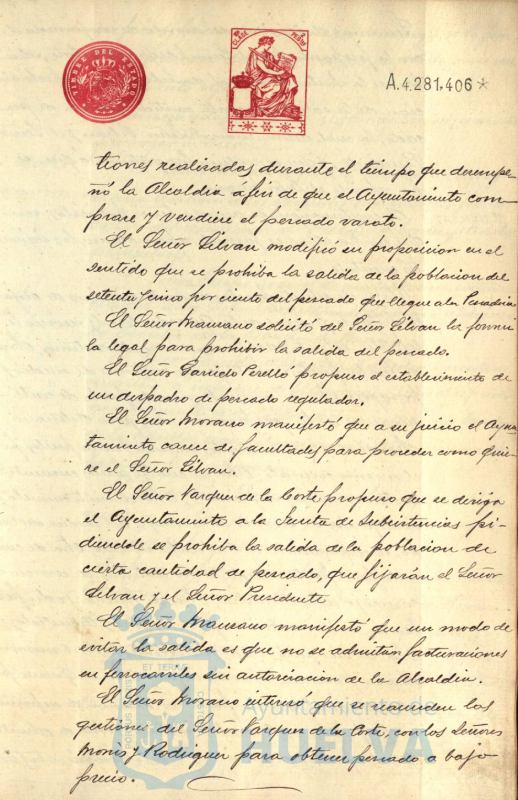 TIMBRE DEL ESTADO
CLASE PESETAS
A.4.281.406*
tiones realizadas durante el tiempo que desempe-
ñó la Alcaldia á fin de que el Ayuntamiento com
prare y vendiere el pescado varato.
El Señor Silvan modificó su proposicion en el
sentido que se prohiba la salida de la poblacion del
setenta y cinco por ciento del pescado que llegue a la Pescaderia
El Señor Manzano solicitó del Señor Silvan la formu
la legal para prohibir la salida del pescado.
El Señor Garrido Perelló propuso el establecimiento de
un despacho de pescado regulador.
El Señor Morano manifestó que a su juicio el Ayun
tamiento carece de facultades para proceder como quie-
re el Señor Silvan.
El Señor Vazquez de la Corte propuso que se dirija
el Ayuntamiento a la Junta de Subsistencias pi-
diendole se prohiba la salida de la poblacion de
cierta cantidad de pescado, que fijarán el Señor
Silvan y el Señor Presidente
El Señor Manzano manifestó que un modo de
evitar la salida es que no se admitan facturaciones
en ferrocarriles sin autorizacion de la Alcaldia.
El Señor Morano interesó que se reanuden las
gestiones del Señor Vazquez de la Corte, con los Señores
Monis y Rodriguez para obtener pescado a bajo
precio.
ET TERRAE
Ayuntamiento de
HUELVA